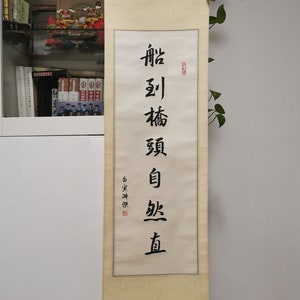 船到橋頭自然直